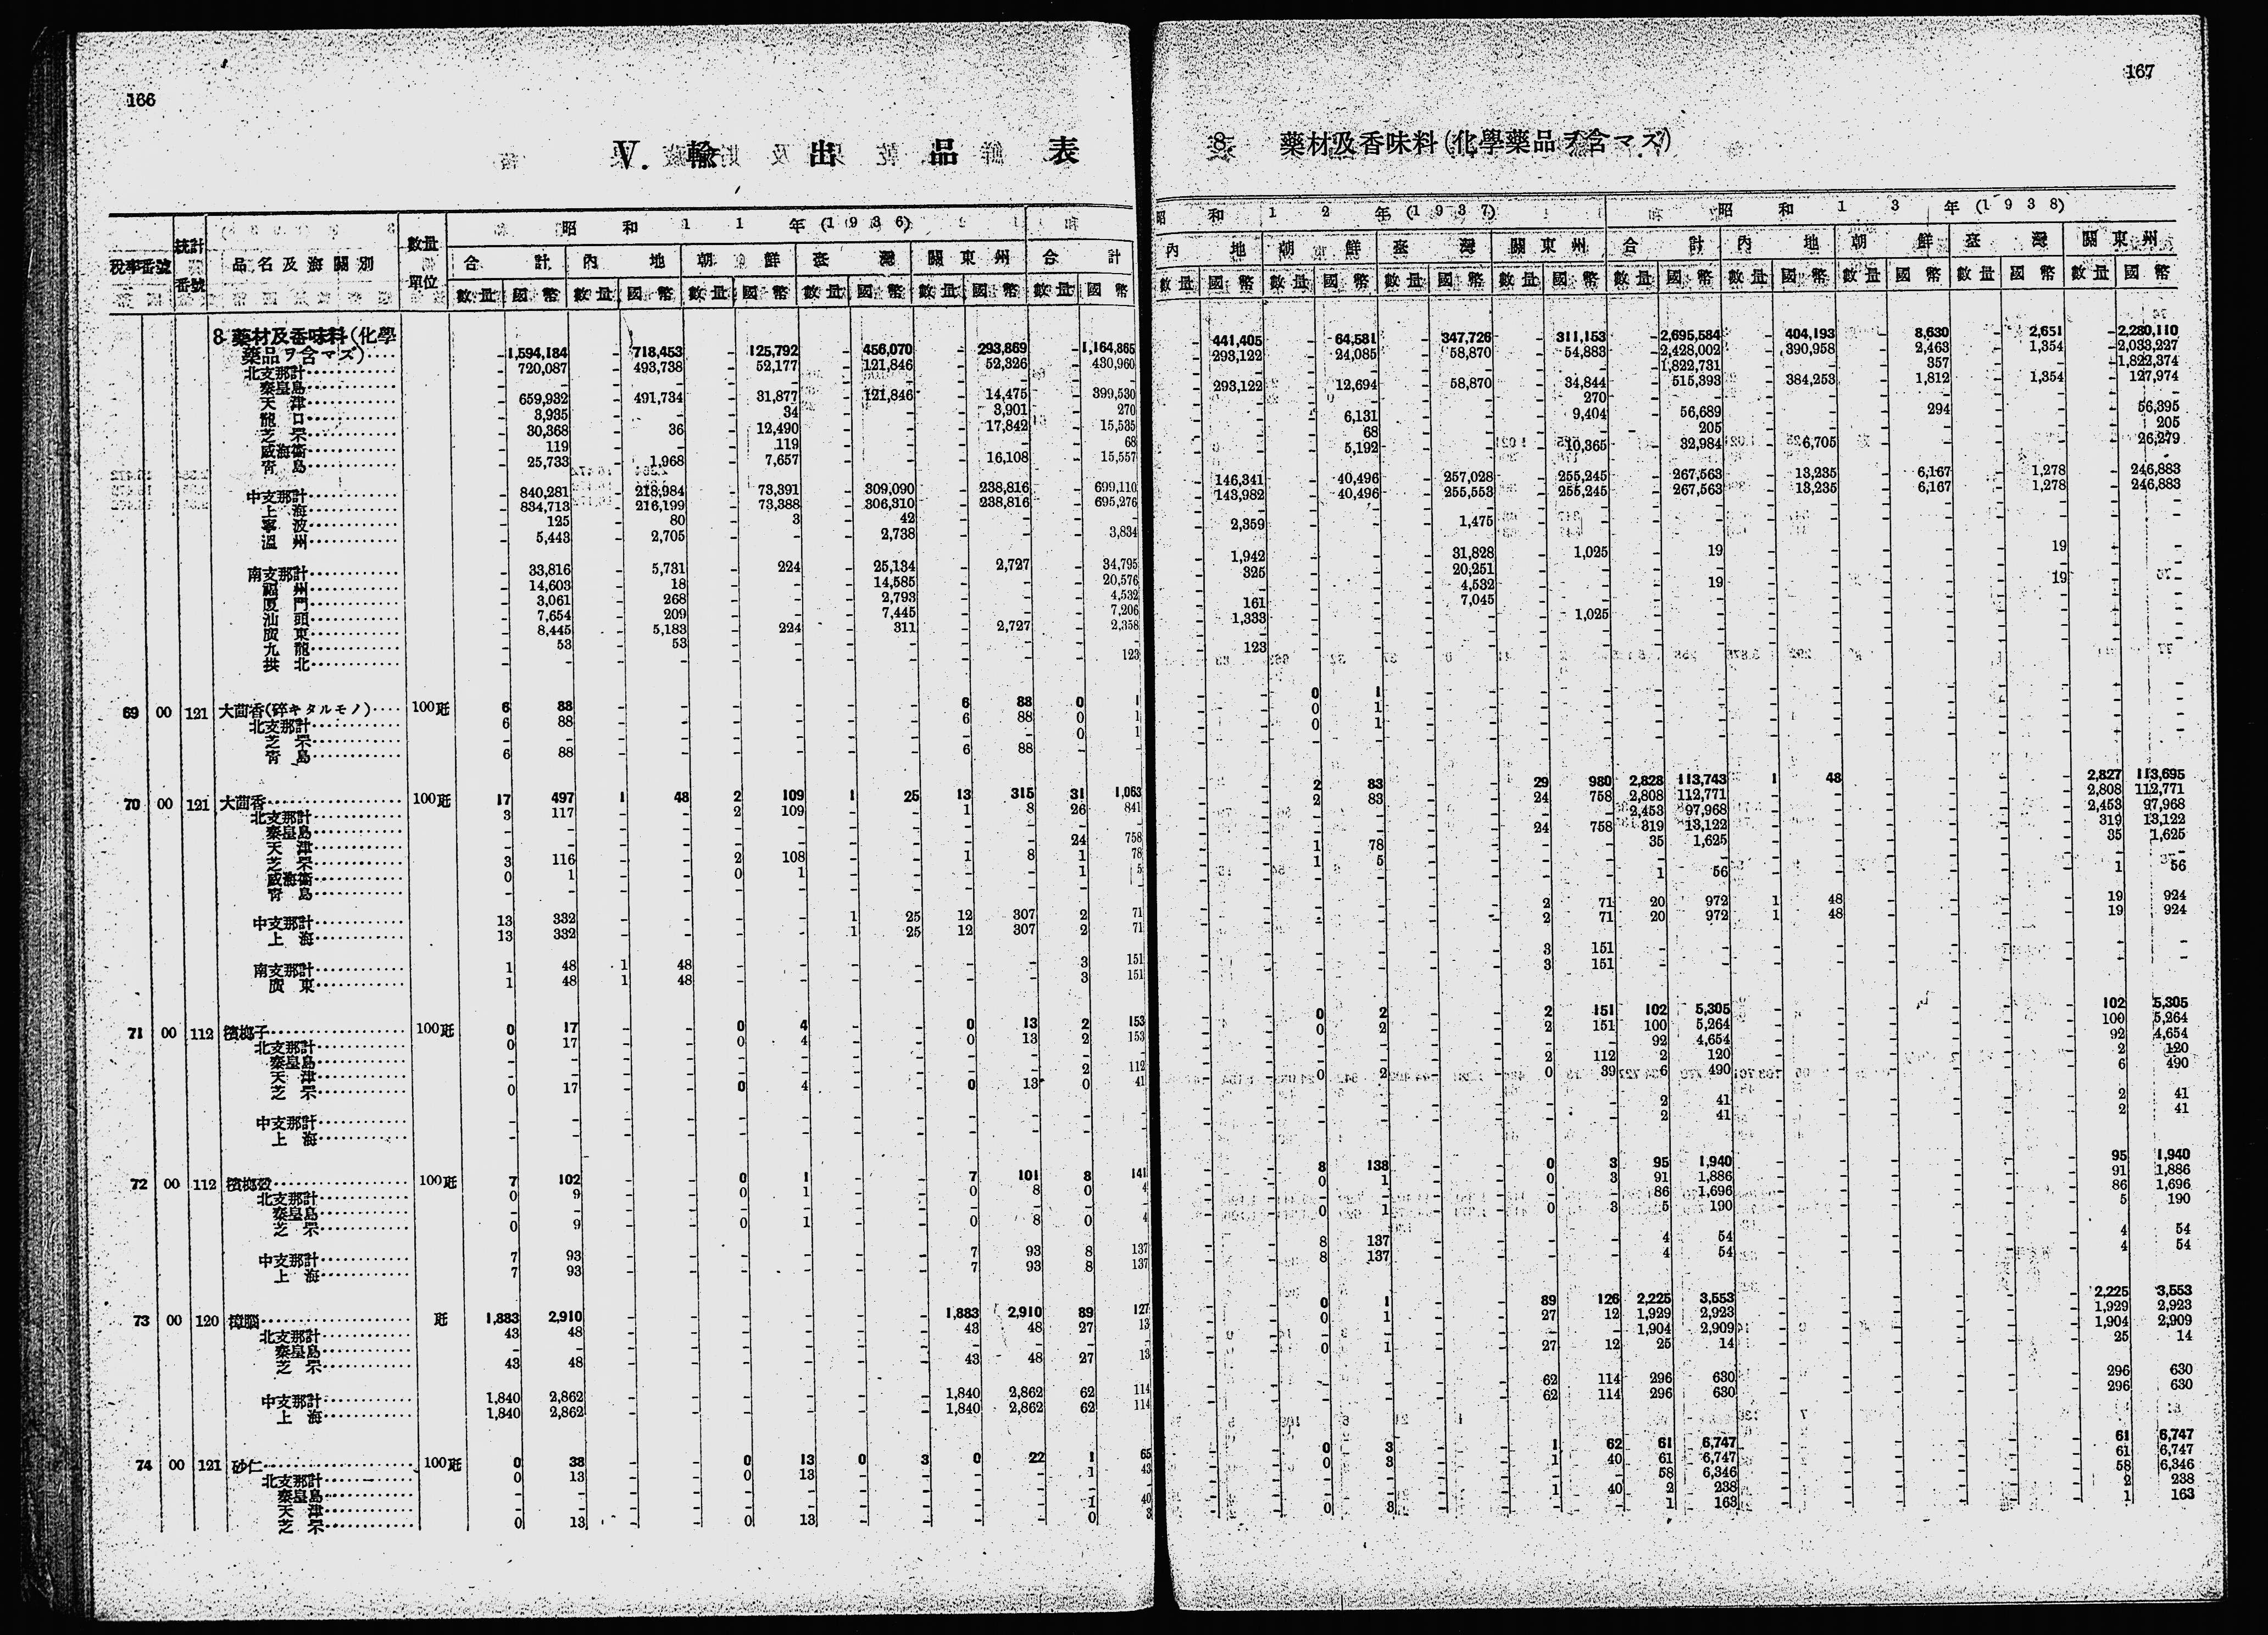 166
V. 輸出品表
稅率番號 統計番號 品名及海關別 數量單位 昭和11年(1936)
合計 內地 朝鮮 臺灣 關東州 合計
數量 國幣 數量 國幣 數量 國幣 數量 國幣 數量 國幣 數量 國幣
8 藥材及香味料(化學
藥品ヲ含マズ)···· - 1,594,184 - 718,453 - 125,792 - 456,070 - 293,869 - 1,164,865
北支那計 - 720,087 - 493,738 - 52,177 - 121,846 - 52,326 - 430,960
秦皇島 - - - - - - - - - - - -
天津 - 659,932 - 491,734 - 31,877 - 121,846 - 14,475 - 399,530
龍口 - 3,935 - - - 34 - - - 3,901 - 270
芝罘 - 30,368 - 36 - 12,490 - - - 17,842 - 15,535
威海衛 - 119 - - - 119 - - - - - 68
靑島 - 25,733 - 1,968 - 7,657 - - - 16,108 - 15,557
中支那計 - 840,281 - 218,984 - 73,391 - 309,090 - 238,816 - 699,110
上海 - 834,713 - 216,199 - 73,388 - 306,310 - 238,816 - 695,276
寧波 - 125 - 80 - 3 - 42 - - - -
溫州 - 5,443 - 2,705 - - - 2,738 - - - 3,834
南支那計 - 33,816 - 5,731 - 224 - 25,134 - 2,727 - 34,795
福州 - 14,603 - 18 - - - 14,585 - - - 20,576
厦門 - 3,061 - 268 - - - 2,793 - - - 4,532
汕頭 - 7,654 - 209 - - - 7,445 - - - 7,206
廣東 - 8,445 - 5,183 - 224 - 311 - 2,727 - 2,358
九龍 - 53 - 53 - - - - - - - -
拱北 - - - - - - - - - - - 123
69 00 121 大茴香(碎キタルモノ)···· 100瓩 6 88 - - - - - - 6 88 0 1
北支那計 6 88 - - - - - - 6 88 0 1
芝罘 - - - - - - - - - - 0 1
靑島 6 88 - - - - - - 6 88 - -
70 00 121 大茴香 100瓩 17 497 1 48 2 109 1 25 13 315 31 1,063
北支那計 3 117 - - 2 109 - - 1 8 26 841
秦皇島 - - - - - - - - - - - -
天津 - - - - - - - - - - 24 758
芝罘 3 116 - - 2 108 - - 1 8 1 78
威海衛 0 1 - - 0 1 - - - - 1 5
靑島 - - - - - - - - - - - -
中支那計 13 332 - - - - 1 25 12 307 2 71
上海 13 332 - - - - 1 25 12 307 2 71
南支那計 1 48 1 48 - - - - - - 3 151
廣東 1 48 1 48 - - - - - - 3 151
71 00 112 檳榔子 100瓩 0 17 - - 0 4 - - 0 13 2 153
北支那計 0 17 - - 0 4 - - 0 13 2 153
秦皇島 - - - - - - - - - - - -
天津 - - - - - - - - - - 2 112
芝罘 0 17 - - 0 4 - - 0 13 0 41
中支那計 - - - - - - - - - - - -
上海 - - - - - - - - - - - -
72 00 112 檳榔殼 100瓩 7 102 - - 0 1 - - 7 101 8 141
北支那計 0 9 - - 0 1 - - 0 8 0 4
秦皇島 - - - - - - - - - - - -
芝罘 0 9 - - 0 1 - - 0 8 0 4
中支那計 7 93 - - - - - - 7 93 8 137
上海 7 93 - - - - - - 7 93 8 137
73 00 120 樟腦 瓩 1,883 2,910 - - - - - - 1,883 2,910 89 127
北支那計 43 48 - - - - - - 43 48 27 13
秦皇島 - - - - - - - - - - - -
芝罘 43 48 - - - - - - 43 48 27 13
中支那計 1,840 2,862 - - - - - - 1,840 2,862 62 114
上海 1,840 2,862 - - - - - - 1,840 2,862 62 114
74 00 121 砂仁 100瓩 0 38 - - 0 13 0 3 0 22 1 65
北支那計 0 13 - - 0 13 - - - - 1 43
秦皇島 - - - - - - - - - - - -
天津 - - - - - - - - - - 1 40
芝罘 0 13 - - 0 13 - - - - 0 3
167
8. 藥材及香味料(化學藥品ヲ含マズ)
昭和12年(1937) 昭和13年(1938)
內地 朝鮮 臺灣 關東州 合計 內地 朝鮮 臺灣 關東州
數量 國幣 數量 國幣 數量 國幣 數量 國幣 數量 國幣 數量 國幣 數量 國幣 數量 國幣 數量 國幣
- 441,405 - 64,581 - 347,726 - 311,153 - 2,695,584 - 404,193 - 8,630 - 2,651 - 2,280,110
- 293,122 - 24,085 - 58,870 - 54,883 - 2,428,002 - 390,958 - 2,463 - 1,354 - 2,033,227
- - - - - - - - - 1,822,731 - - - 357 - - - 1,822,374
- 293,122 - 12,694 - 58,870 - 34,844 - 515,393 - 384,253 - 1,812 - 1,354 - 127,974
- - - - - - - 270 - - - - - - - - - -
- - - 6,131 - - - 9,404 - 56,689 - - - 294 - - - 56,395
- - - 68 - - - - - 205 - - - - - - - 205
- - - 5,192 - - - 10,365 - 32,984 - 6,705 - - - - - 26,279
- 146,341 - 40,496 - 257,028 - 255,245 - 267,563 - 13,235 - 6,167 - 1,278 - 246,883
- 143,982 - 40,496 - 255,553 - 255,245 - 267,563 - 13,235 - 6,167 - 1,278 - 246,883
- - - - - - - - - - - - - - - - - -
- 2,359 - - - 1,475 - - - - - - - - - - - -
- 1,942 - - - 31,828 - 1,025 - 19 - - - - - 19 - -
- 325 - - - 20,251 - - - - - - - - - - - -
- - - - - 4,532 - - - 19 - - - - - 19 - -
- 161 - - - 7,045 - - - - - - - - - - - -
- 1,333 - - - - - 1,025 - - - - - - - - - -
- - - - - - - - - - - - - - - - - -
- 123 - - - - - - - - - - - - - - - -
- - 0 1 - - - - - - - - - - - - - -
- - 0 1 - - - - - - - - - - - - - -
- - 0 1 - - - - - - - - - - - - - -
- - - - - - - - - - - - - - - - - -
- - 2 83 - - 29 980 2,828 113,743 1 48 - - - - 2,827 113,695
- - 2 83 - - 24 758 2,808 112,771 - - - - - - 2,808 112,771
- - - - - - - - 2,453 97,968 - - - - - - 2,453 97,968
- - - - - - 24 758 319 13,122 - - - - - - 319 13,122
- - 1 78 - - - - 35 1,625 - - - - - - 35 1,625
- - 1 5 - - - - - - - - - - - - - -
- - - - - - - - 1 56 - - - - - - 1 56
- - - - - - 2 71 20 972 1 48 - - - - 19 924
- - - - - - 2 71 20 972 1 48 - - - - 19 924
- - - - - - 3 151 - - - - - - - - - -
- - - - - - 3 151 - - - - - - - - - -
- - 0 2 - - 2 151 102 5,305 - - - - - - 102 5,305
- - 0 2 - - 2 151 100 5,264 - - - - - - 100 5,264
- - - - - - - - 92 4,654 - - - - - - 92 4,654
- - - - - - 2 112 2 120 - - - - - - 2 120
- - 0 2 - - 0 39 6 490 - - - - - - 6 490
- - - - - - - - 2 41 - - - - - - 2 41
- - - - - - - - 2 41 - - - - - - 2 41
- - 8 138 - - 0 3 95 1,940 - - - - - - 95 1,940
- - 0 1 - - 0 3 91 1,886 - - - - - - 91 1,886
- - - - - - - - 86 1,696 - - - - - - 86 1,696
- - 0 1 - - 0 3 5 190 - - - - - - 5 190
- - 8 137 - - - - 4 54 - - - - - - 4 54
- - 8 137 - - - - 4 54 - - - - - - 4 54
- - 0 1 - - 89 126 2,225 3,553 - - - - - - 2,225 3,553
- - 0 1 - - 27 12 1,929 2,923 - - - - - - 1,929 2,923
- - - - - - - - 1,904 2,909 - - - - - - 1,904 2,909
- - 0 1 - - 27 12 25 14 - - - - - - 25 14
- - - - - - 62 114 296 630 - - - - - - 296 630
- - - - - - 62 114 296 630 - - - - - - 296 630
- - 0 3 - - 1 62 61 6,747 - - - - - - 61 6,747
- - 0 3 - - 1 40 61 6,747 - - - - - - 61 6,747
- - - - - - - - 58 6,346 - - - - - - 58 6,346
- - - - - - 1 40 2 238 - - - - - - 2 238
- - 0 3 - - - - 1 163 - - - - - - 1 163